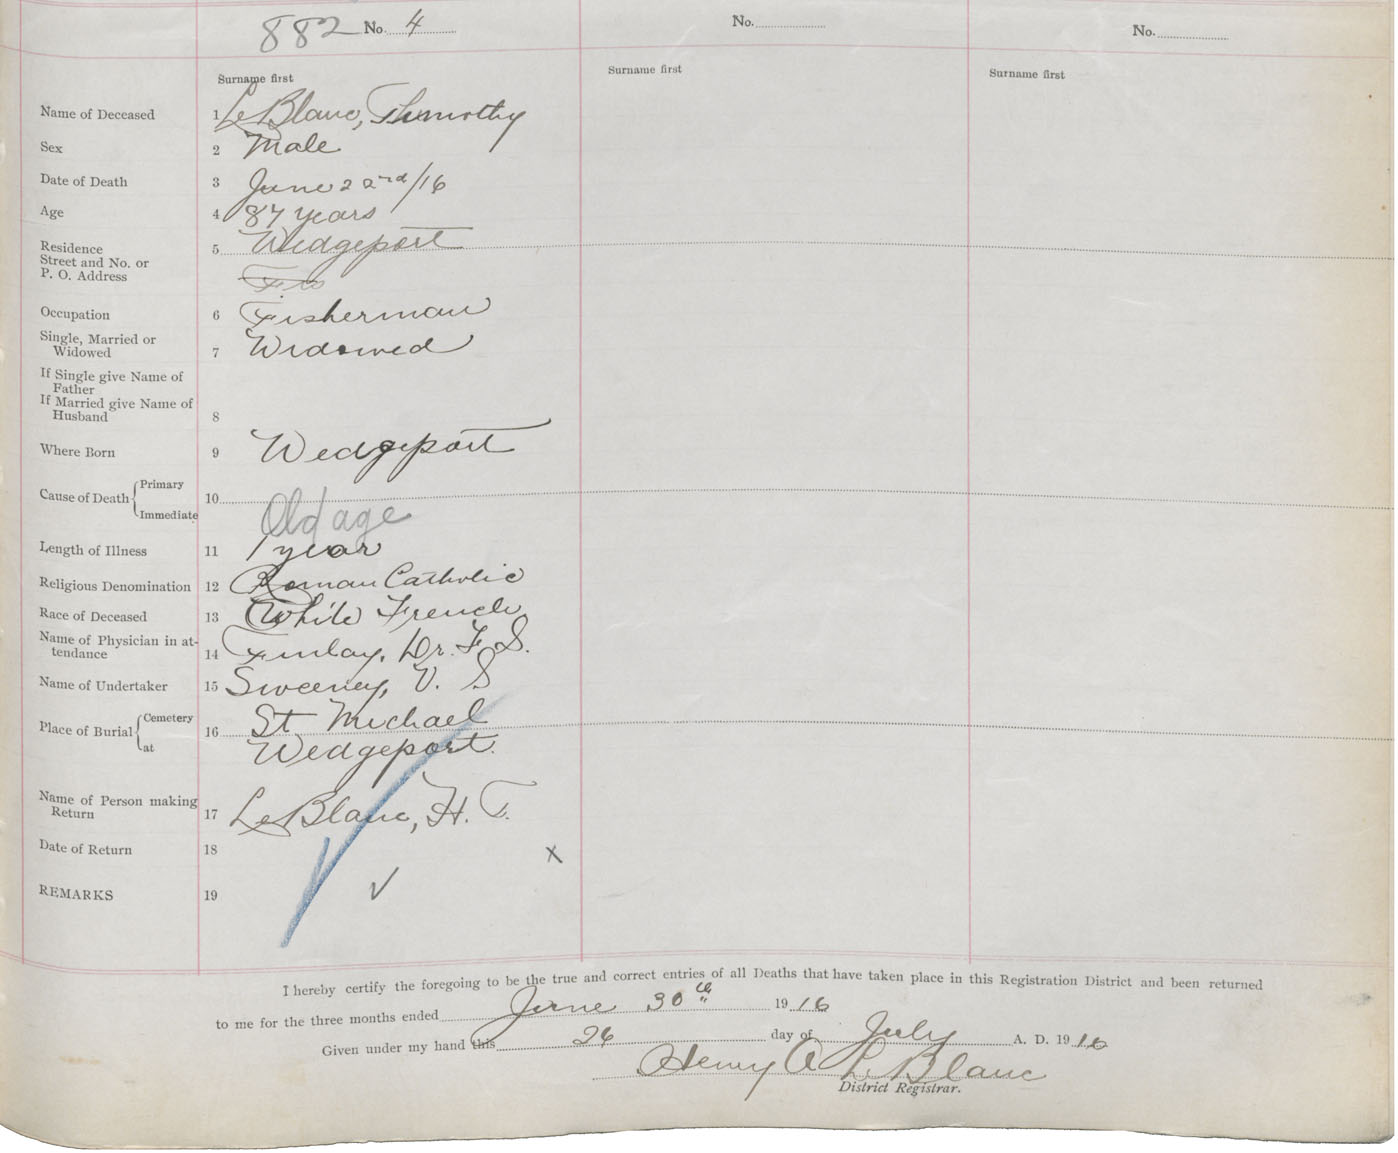 882 No. 4
No.
No.
Surname first
Surname first
Surname first
Name of Deceased 1 LeBlanc, Thimothy
Sex 2 Male
Date of Death 3 June 22nd/16
Age 4 87 years
Residence
Street and No. or 5 Wedgeport
P. O. Address
Occupation 6 Fisherman
Single, Married or
Widowed 7 Widowed
If Single give Name of
Father
If Married give Name of
Husband 8
Where Born 9 Wedgeport
Cause of Death Primary
10
Immediate Old age
Length of Illness 11 1 year
Religious Denomination 12 Roman Catholic
Race of Deceased 13 White French
Name of Physician in at-
tendance 14 Finlay, Dr. F. S.
Name of Undertaker 15 Sweeney, V. S
Place of Burial Cemetery 16 St Michael
at Wedgeport.
Name of Person making
Return 17 LeBlanc, H. T.
Date of Return 18
x
REMARKS 19
I hereby certify the foregoing to be the true and correct entries of all Deaths that have taken place in this Registration District and been returned
to me for the three months ended June 30th 1916
Given under my hand this 26 day of July A. D. 1916
Henry A LeBlanc
District Registrar.